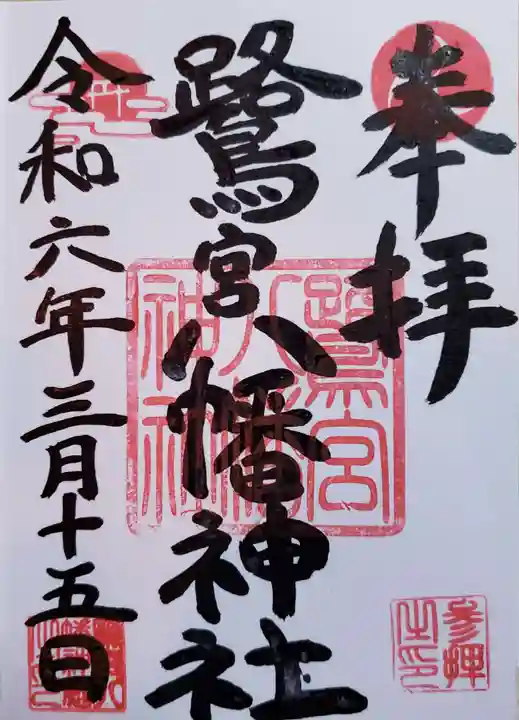 奉拝
鷺宮八幡神社
令和六年三月十五日
鷺宮
八幡
神社
参拝
之印